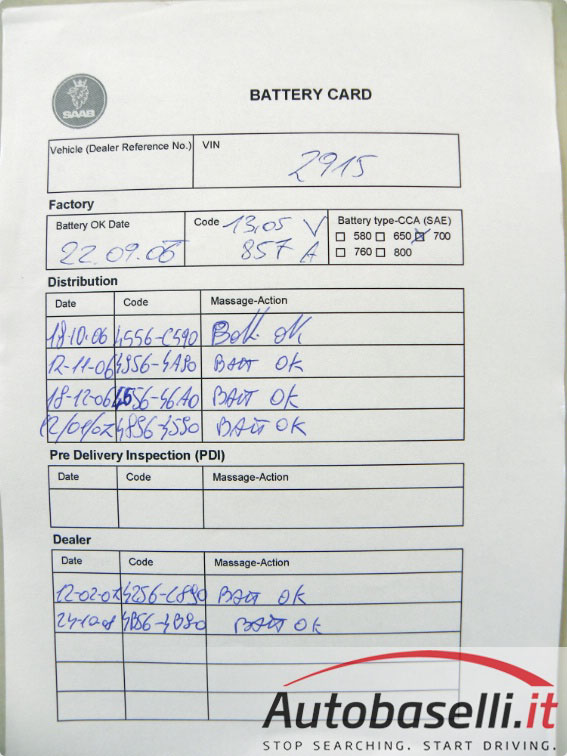 SAAB
BATTERY CARD
Vehicle (Dealer Reference No.) VIN
2915
Factory
Battery OK Date Code 13,05 V Battery type-CCA (SAE)
22.09.06 857 A 580 650 700
760 800
Distribution
Date Code Massage-Action
18-10-06 4556-C590 Batt. OK
12-11-06 4956-4A90 BATT OK
18-12-06 4656-46A0 BATT OK
12/01/07 4896-4590 BATT OK
Pre Delivery Inspection (PDI)
Date Code Massage-Action
Dealer
Date Code Massage-Action
12-02-07 4256-C890 BATT OK
24-10-08 4B56-4B80 BATT OK
Autobaselli.it
STOP SEARCHING. START DRIVING.